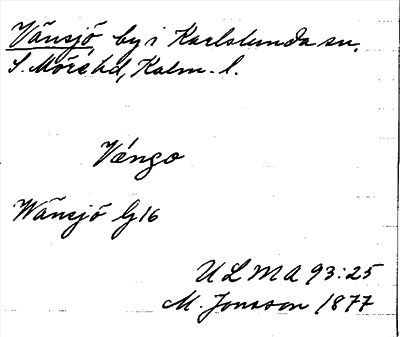 Vänsjö by i Karlslunda sn.
S. Möre hd, Kalm. l.
Vángo
Wänsjö G16
ULMA 93:25
M. Jonsson 1877